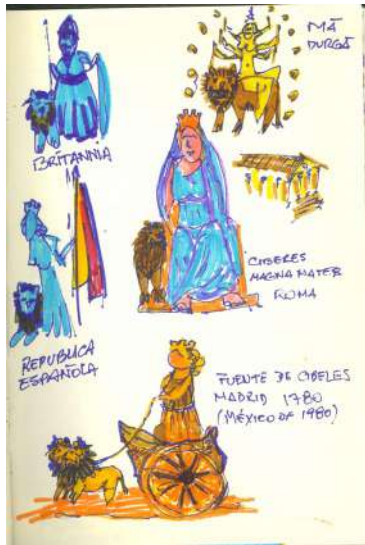 BRITANNIA
MĀ
DURGĀ
CIBERES
MAGNA MATER
ROMA
REPUBLICA
ESPAÑOLA
FUENTE DE CIBELES
MADRID 1780
(MÉXICO DF 1980)